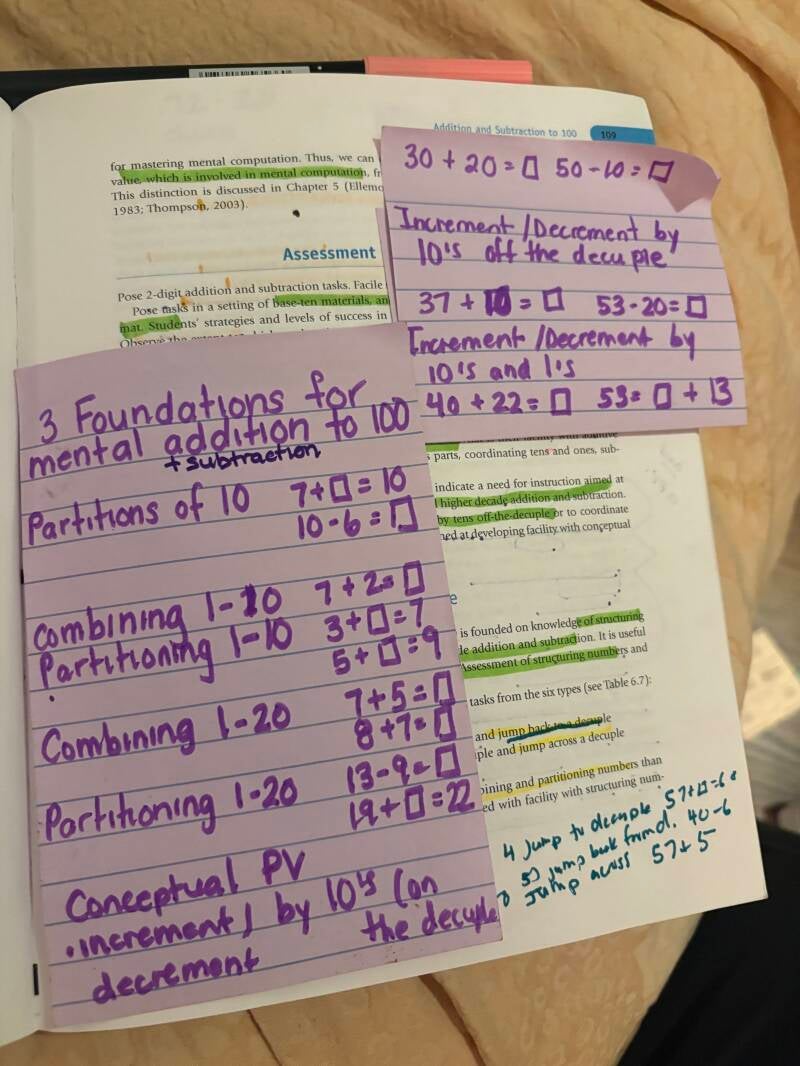 Addition and Subtraction to 100 109
for mastering mental computation. Thus, we can
value, which is involved in mental computation, fr
This distinction is discussed in Chapter 5 (Ellemo
1983; Thompson, 2003).
Assessment
Pose 2-digit addition and subtraction tasks. Facile
Pose tasks in a setting of base-ten materials, an
mat. Students' strategies and levels of success in
Observe the
30 + 20 = □ 50 - 10 = □
Increment / Decrement by
10's off the decuple
37 + 10 = □ 53 - 20 = □
Increment / Decrement by
10's and 1's
40 + 22 = □ 53 = □ + 13
3 Foundations for
mental addition to 100
+ subtraction
Partitions of 10 7 + □ = 10
10 - 6 = □
Combining 1-10 7 + 2 = □
Partitioning 1-10 3 + □ = 7
5 + □ = 9
Combining 1-20 7 + 5 = □
8 + 7 = □
Partitioning 1-20 13 - 9 = □
19 + □ = 22
Conceptual PV
• increment / by 10's (on
decrement the decuple
parts, coordinating tens and ones, sub-
indicate a need for instruction aimed at
higher decade addition and subtraction.
by tens off-the-decuple or to coordinate
ed at developing facility with conceptual
is founded on knowledge of structuring
le addition and subtraction. It is useful
Assessment of structuring numbers and
tasks from the six types (see Table 6.7):
and jump back to a decuple
ple and jump across a decuple
ining and partitioning numbers than
ed with facility with structuring num-
4 jump to decuple 57 + □ = 6
5) jump back from d. 40 - 6
jump across 57 + 5